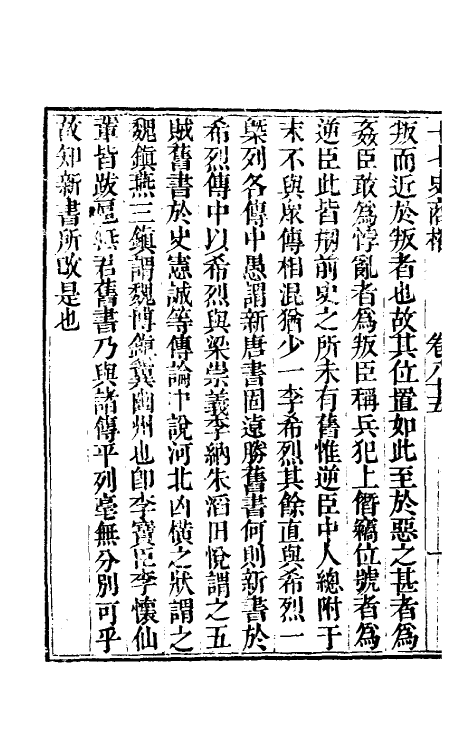 十七史商榷 卷八十五
叛而近於叛者也故其位置如此至於惡之甚者為
姦臣敢為悖亂者為叛臣稱兵犯上僭竊位號者為
逆臣此皆前史之所未有舊惟逆臣中人總附于
末不與眾傳相混猶少一李希烈其餘直與希烈一
槩列各傳中愚謂新唐書固遠勝舊書何則新書於
希烈傳中以希烈與梁崇義李納朱滔田悅謂之五
賊舊書於史憲誠等傳論中說河北凶橫之狀謂之
魏鎮燕三鎮謂魏博鎮冀幽州也卽李寶臣李懷仙
輩皆跋扈無君舊書乃與諸傳平列毫無分別可乎
故知新書所改是也